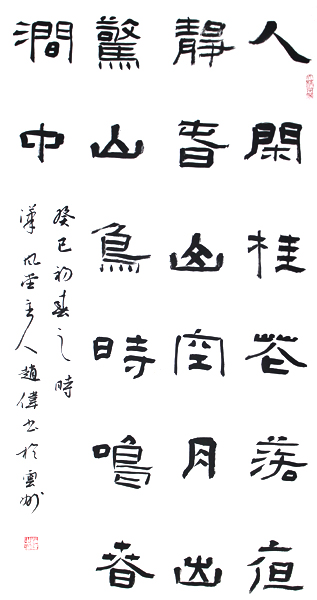 人閑桂花落夜
靜春山空月出
驚山鳥時鳴春
澗中
癸巳初春之時
漢風堂主人趙偉書於雲州